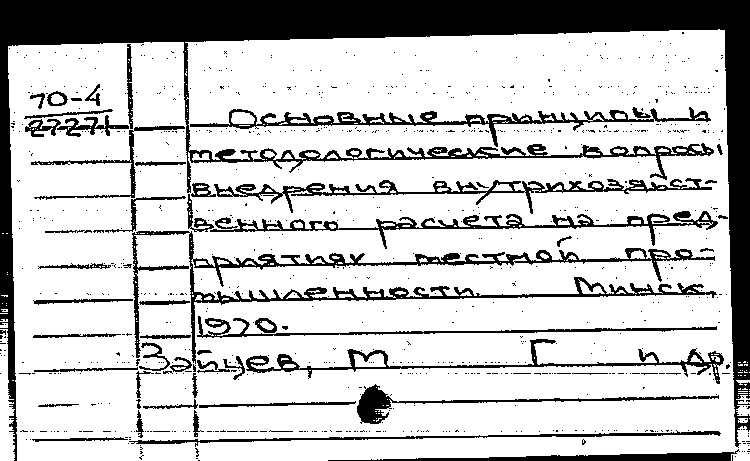 70-4
27271
Основные принципы и
методологические вопросы
внедрения внутрихозяйст-
венного расчета на пред-
приятиях местной про-
мышленности. Минск,
1970.
Зайцев, М Г и др.